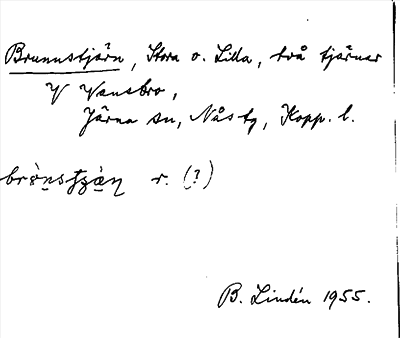 Brunnstjärn, Stora o. Lilla, två tjärnar
V Vansbro,
Järna sn, Nås tg, Kopp. l.
r. (?)
B. Lindén 1955.